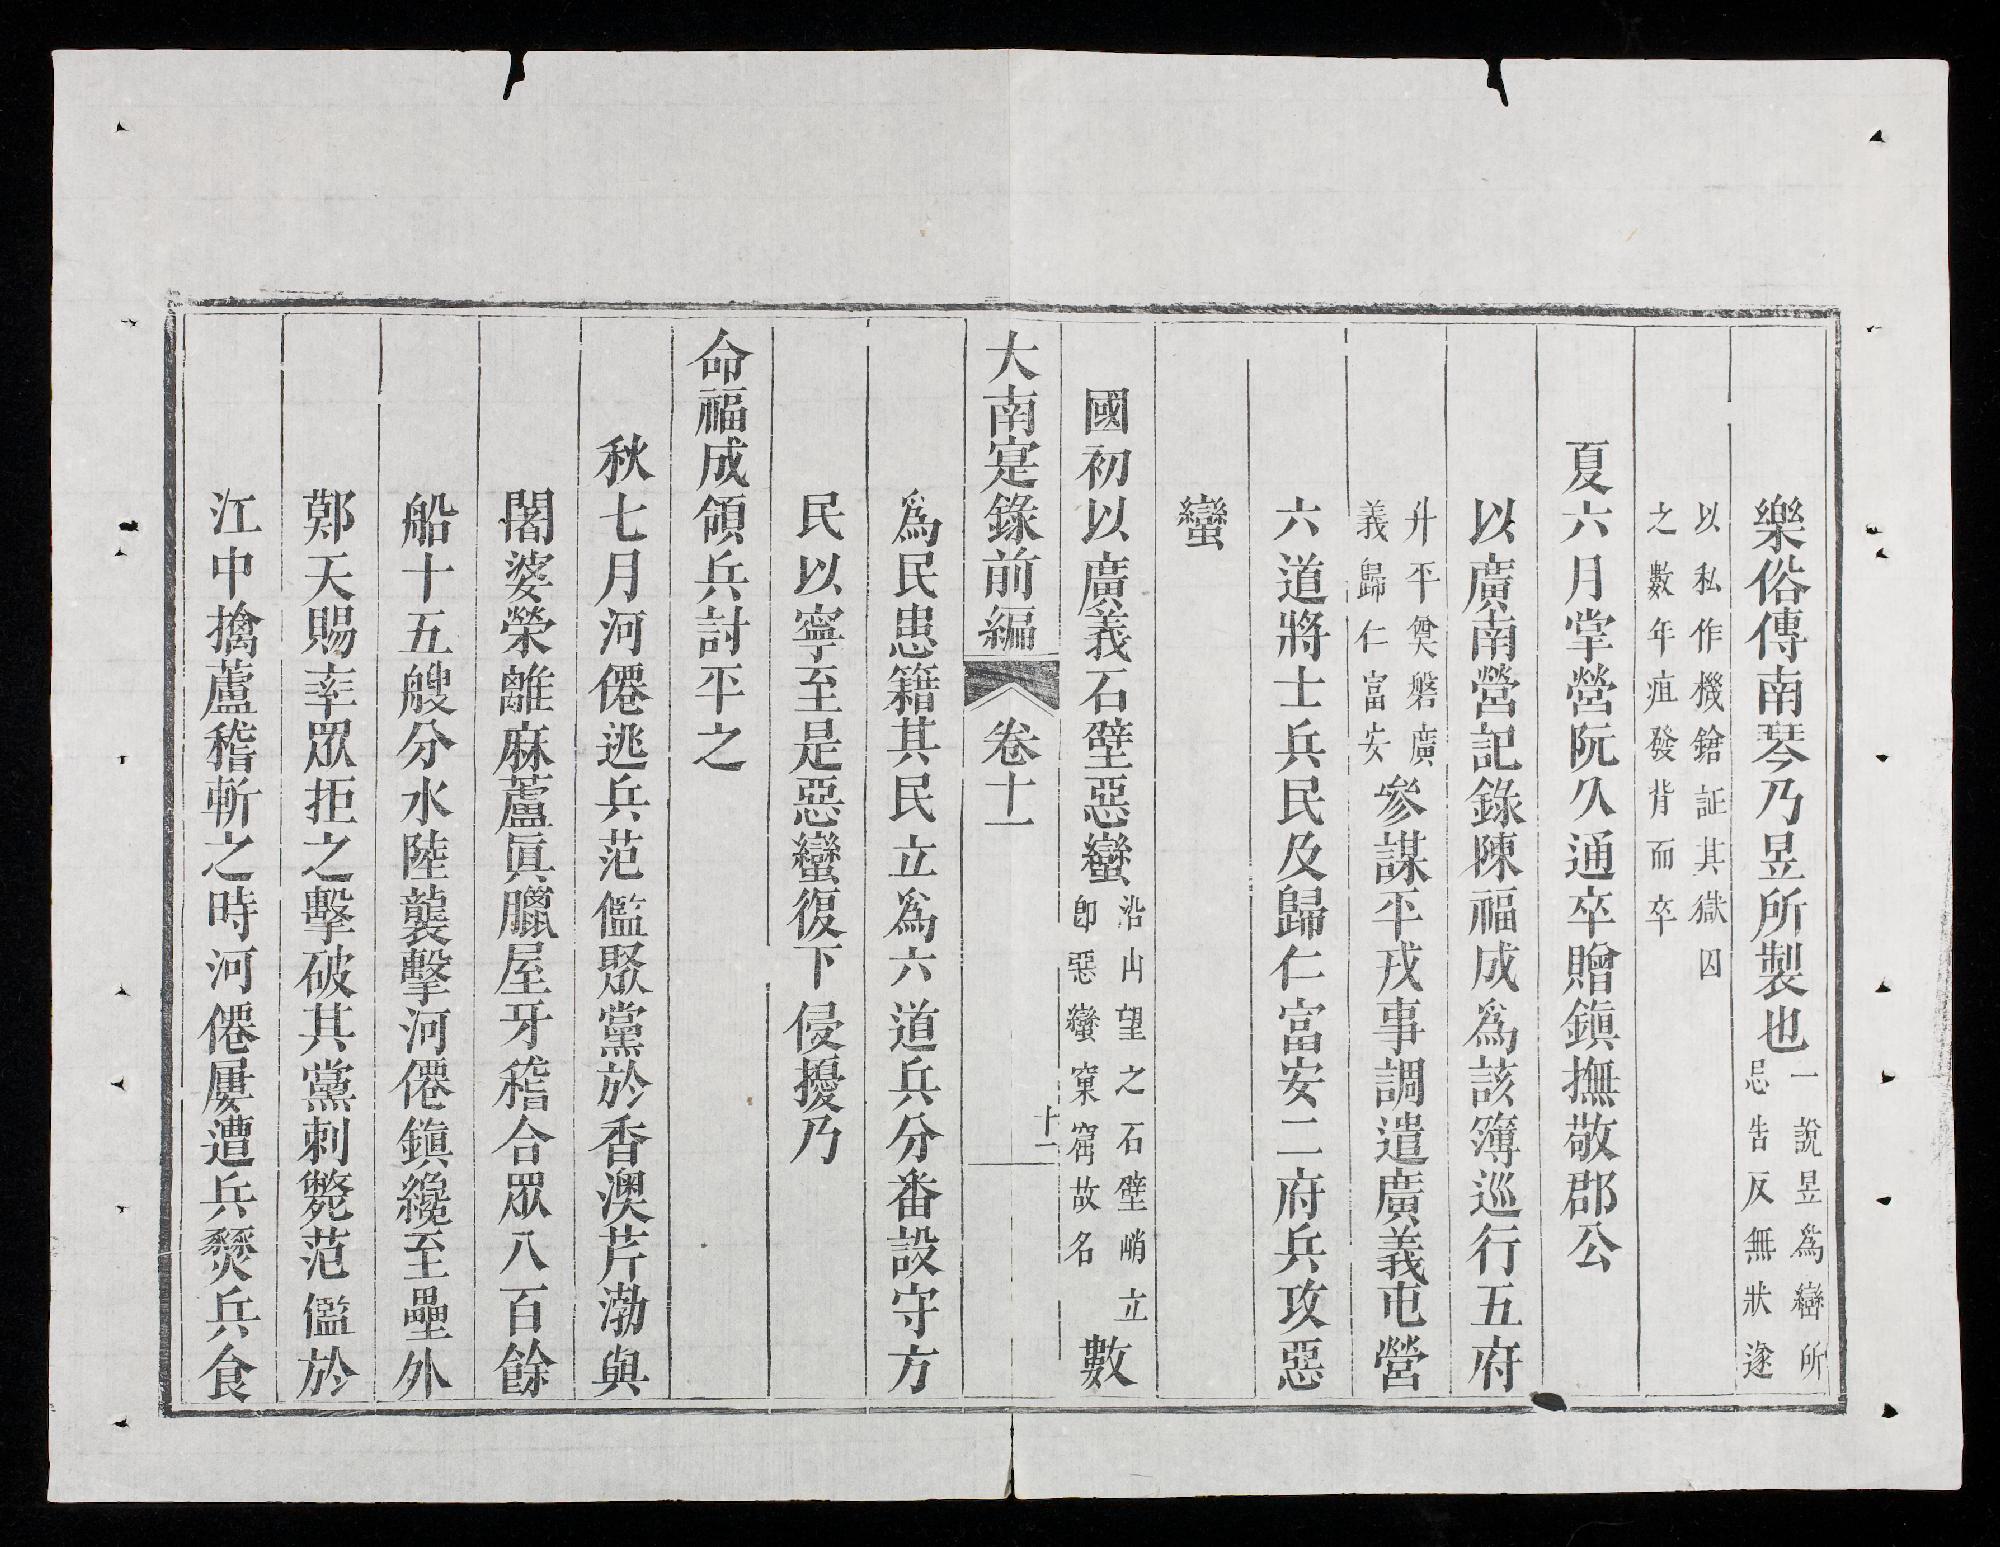 樂俗傳南琴乃昱所製也一說昱為巒所
忌告反無狀遂
以私作機鎗証其獄囚
之數年疽發背而卒
夏六月掌營阮久通卒贈鎮撫敬郡公
以廣南營記錄陳福成為該簿巡行五府
升平奠磐廣
義歸仁富安
參謀平戎事調遣廣義屯營
六道將士兵民及歸仁富安二府兵攻惡
蠻
國初以廣義石壁惡蠻
沿山望之石壁峭立
即惡蠻窠窩故名
數
大南寔錄前編 卷十一 十一
為民患籍其民立為六道兵分番設守方
民以寧至是惡蠻復下侵擾乃
命福成領兵討平之
秋七月河僊逃兵范㒑聚黨於香澳芹渤與
闍婆榮離麻蘆眞臘屋牙稽合眾八百餘
船十五艘分水陸襲擊河僊鎮纔至壘外
鄭天賜率眾拒之擊破其黨刺斃范㒑於
江中擒蘆稽斬之時河僊屢遭兵燹兵食